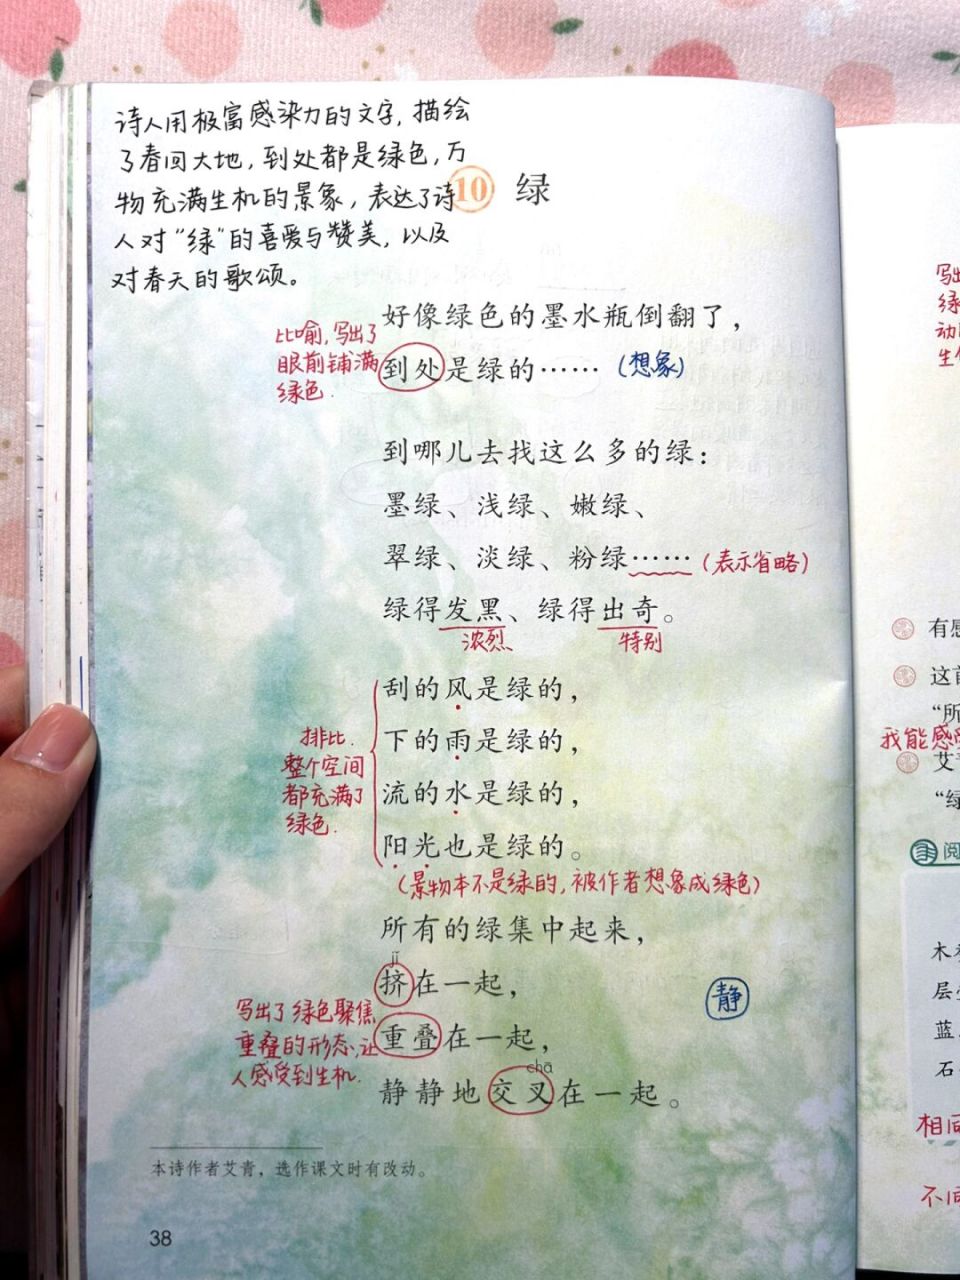 诗人用极富感染力的文字，描绘
了春回大地，到处都是绿色，万
物充满生机的景象，表达了诗
人对“绿”的喜爱与赞美，以及
对春天的歌颂。
10 绿
好像绿色的墨水瓶倒翻了，
到处是绿的……（想象）
比喻，写出了
眼前铺满
绿色.
到哪儿去找这么多的绿：
墨绿、浅绿、嫩绿、
翠绿、淡绿、粉绿……（表示省略）
绿得发黑、绿得出奇。
浓烈 特别
刮的风是绿的，
下的雨是绿的，
流的水是绿的，
阳光也是绿的。
排比.
整个空间
都充满了
绿色.
（景物本不是绿的，被作者想象成绿色）
所有的绿集中起来，
jǐ
挤在一起，
静
重叠在一起，
chā
静静地交叉在一起。
写出了绿色聚焦
重叠的形态，让
人感受到生机.
本诗作者艾青，选作课文时有改动。
38
写出
绿
动
生
有感
这首
“所
我能感受
艾青
“绿
阅
木
层
蓝
石
相同
不同